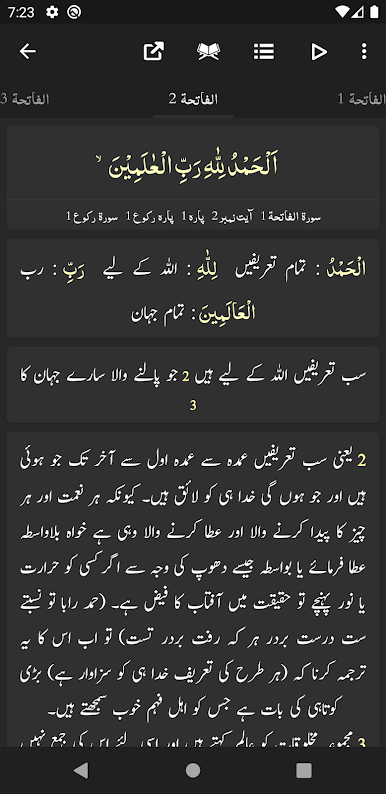 7:23
الفاتحة 1
الفاتحة 2
الفاتحة 3
اَلْحَمْدُ لِلّٰهِ رَبِّ الْعٰلَمِيْنَ ۙ
سورۃ الفاتحة 1 آیت نمبر 2 پارہ 1 پارہ رکوع 1 سورۃ رکوع 1
الْحَمْدُ : تمام تعریفیں لِلّٰهِ : اللہ کے لیے رَبِّ : رب
الْعَالَمِينَ : تمام جہان
سب تعریفیں اللہ کے لیے ہیں 2 جو پالنے والا سارے جہان کا
3
2 یعنی سب تعریفیں عمدہ سے عمدہ اول سے آخر تک جو ہوئی
ہیں اور جو ہوں گی خدا ہی کو لائق ہیں۔ کیونکہ ہر نعمت اور ہر
چیز کا پیدا کرنے والا اور عطا کرنے والا وہی ہے خواہ بلاواسطہ
عطا فرمائے یا بواسطہ جیسے دھوپ کی وجہ سے اگر کسی کو حرارت
یا نور پہنچے تو حقیقت میں آفتاب کا فیض ہے۔ (حمد رابا تو نسبتے
ست درست بردر ہر کہ رفت بردر تست) تو اب اس کا یہ
ترجمہ کرنا کہ (ہر طرح کی تعریف خدا ہی کو سزاوار ہے) بڑی
کوتاہی کی بات ہے جس کو اہل فہم خوب سمجھتے ہیں۔
3 مجموعہ مخلوقات کو عالم کہتے ہیں اور اسی لئے اس کی جمع نہیں